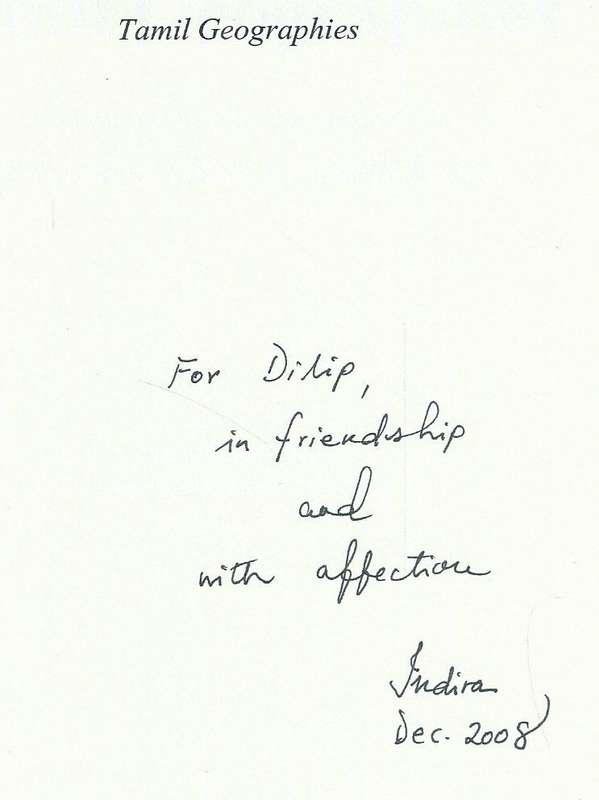 Tamil Geographies
For Dilip,
in friendship
and
with affection
Indira
Dec. 2008